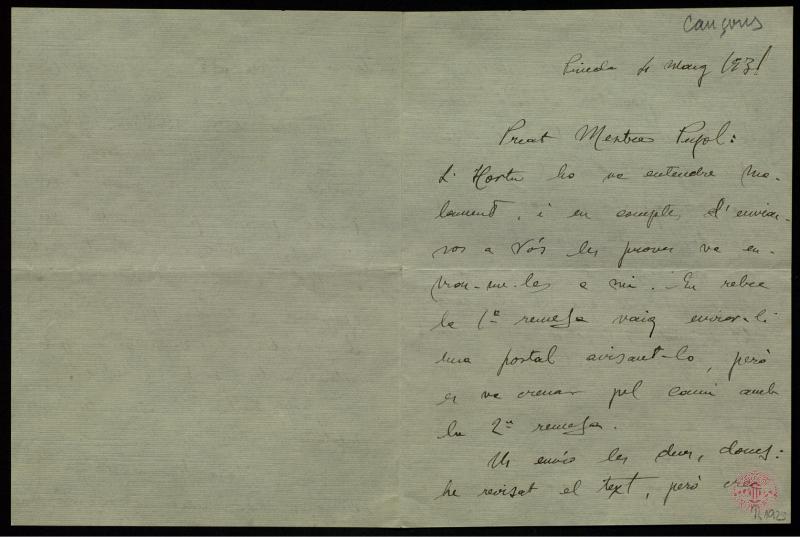 Cançons
Pineda 4 Març 1931
Preat Mestre Pujol:
L'Hostu ho va entendre ma-
lament, i en comptes d'enviar-
vos a Vós les proves va en-
viar-me-les a mi. En rebre
la 1ª remesa vaig enviar-li
una postal avisant-lo, però
es va creuar pel camí amb
la 2ª remesa.
Us envio les dues, doncs:
he revisat el text, però crec